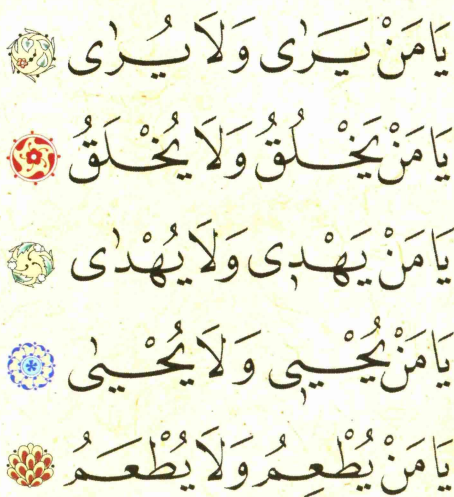 يَا مَنْ يَرٰى وَلَا يُرٰى
يَا مَنْ يَخْلُقُ وَلَا يُخْلَقُ
يَا مَنْ يَهْدٖى وَلَا يُهْدٰى
يَا مَنْ يُحْيٖى وَلَا يُحْيٰى
يَا مَنْ يُطْعِمُ وَلَا يُطْعَمُ